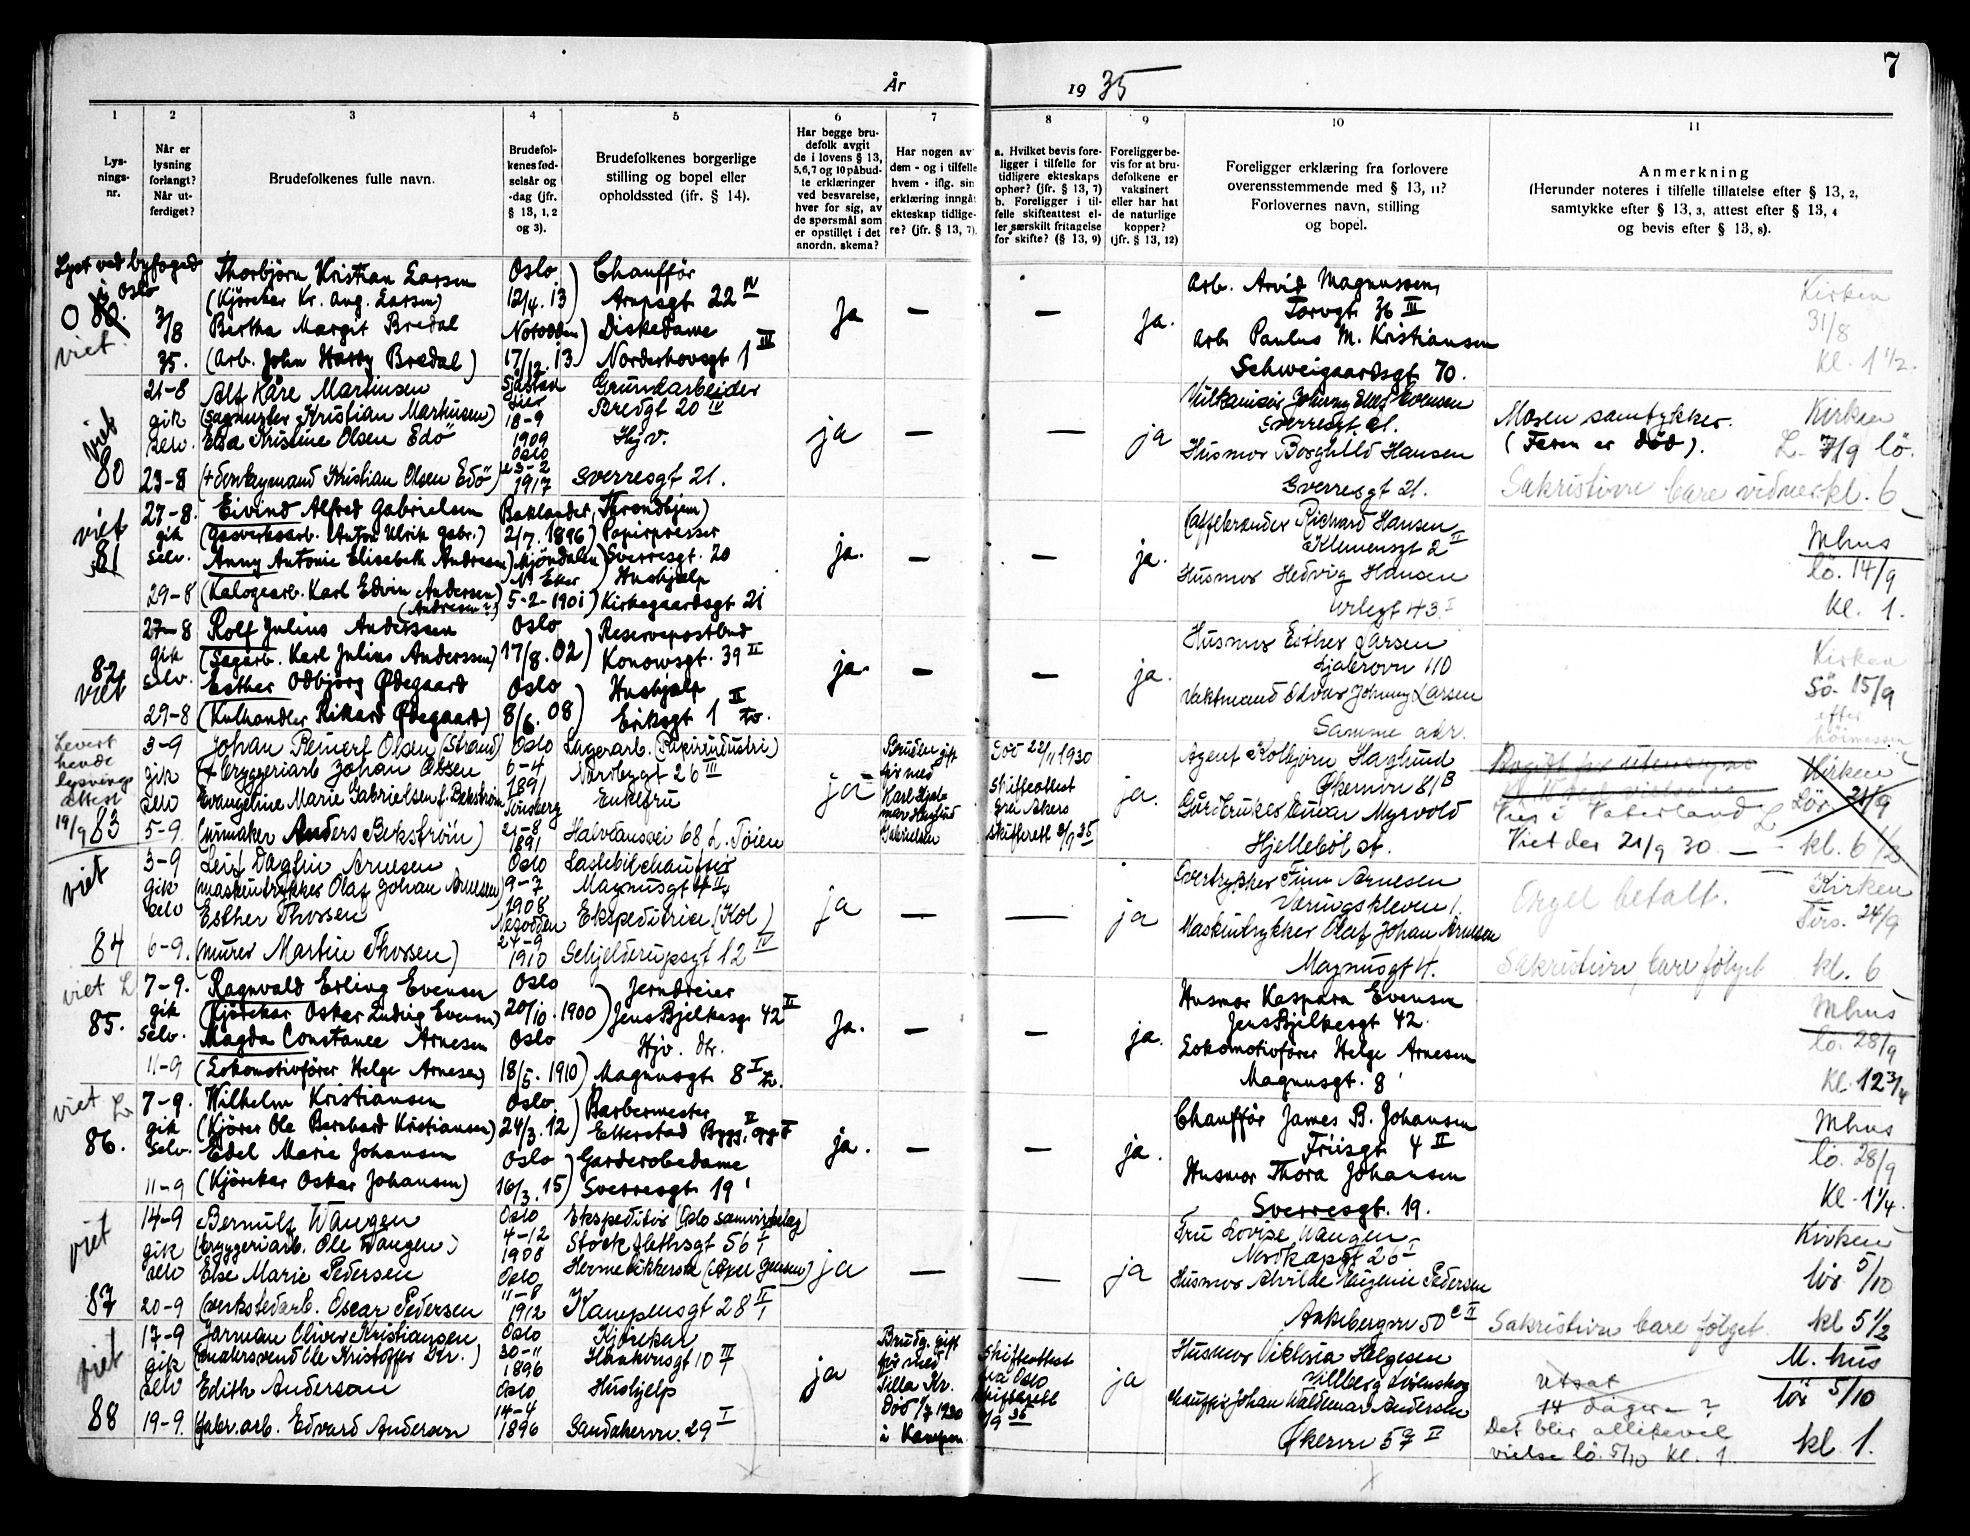 7
År 1935
1
2
3
4
5
6
7
8
9
10
11
Lys-
nings-
nr.
Når er
lysning
forlangt?
Når ut-
ferdiget?
Brudefolkenes fulle navn.
Brudefol-
kenes fød-
selsår og
-dag (jfr.
§ 13, 1, 2
og 3).
Brudefolkenes borgerlige
stilling og bopel eller
opholdssted (jfr. § 14).
Har begge bru-
defolk avgit
de i lovens § 13,
5, 6, 7 og 10 påbud-
te erklæringer
ved besvarelse,
hver for sig, av
de spørsmål som
er opstillet i det
anordn. skema?
Har nogen av
dem - og i tilfelle
hvem - iflg. sin
erklæring inngåt
ekteskap tidlige-
re? (jfr. § 13, 7).
a. Hvilket bevis fore-
ligger i tilfelle for
tidligere ekteskaps
ophør? (jfr. § 13, 7)
b. Foreligger i til-
felle skifteattest el-
ler særskilt fritagelse
for skifte? (§ 13, 9)
Foreligger be-
vis for at bru-
defolkene er
vaksinert
eller har hat
de naturlige
kopper?
(jfr. § 13, 12)
Foreligger erklæring fra forlovere
overensstemmende med § 13, 11?
Forlovernes navn, stilling
og bopel.
Anmerkning
(Herunder noteres i tilfelle tillatelse efter § 13, 2,
samtykke efter § 13, 3, attest efter § 13, 4
og bevis efter § 13, 8).
Lyst ved byfoged
i Oslo
0 80.
viet.
3/8
35.
Thorbjørn Kristian Larsen
(Kjørekar Kr. Aug. Larsen)
Bertha Margit Bredal
(Arb. John Harry Bredal)
Oslo
12/4. 13)
Notodden
17/12. 13)
Chaufför
Arupsgt. 22 IV
Diskedame
Norderhovsgt 1 III
Ja
—
—
ja.
Arb. Arvid Magnussen,
Torvgt. 36 II
Arb. Paulus M. Kristiansen
Schweigaardsgt 70.
Kirken
31/8
Kl. 1 1/2.
viet
80
21-8
gik
selv.
23-8
Alf Kåre Martinsen
Kristian Markusen)
Elsa Kristine Olsen Edö
Kristian Olsen Edö)
Lier
18-9
1909
Oslo
23-2
1917
Grundarbeider
Bredgt 20 IV
Hjv.
Sverresgt 21.
ja
—
—
ja
Evensen
Sverresgt 21.
Husmor Borghild Hansen
Sverresgt 21.
Moren samtykker.
(Faren er död).
Sakristivn bare vidner
Kirken
L. 7/9 lö.
kl. 6
viet
81
27-8.
gik
selv.
29-8
Eivind Alfred Gabrielsen
(Gasverksarb. Anton Ulrik Gabr.)
Anny Antonie Elisabeth Andresen
(Kalogearb. Karl Edvin Andersen)
(Andresen?)
Baklandet, Trondhjem)
2/7. 1896)
Mjöndalen)
N. Eker
5-2-1901)
Papirpresser
Sverresgt. 20
Hushjælp
Kirkegaardsgt 21
ja.
—
—
ja.
Caffebrænder Richard Hansen
Klemensgt 2 II
Husmor Hedvig Hansen
Urtegt 43 I
Mhus
lö. 14/9
Kl. 1.
82
viet
27-8
gik
selv.
29-8
Rolf Julius Anderssen
(Sagarb. Karl Julius Anderssen)
Esther Odbjörg Ödegaard
(Kulhandler Rikard Ødegaard)
Oslo
17/8. 02)
Oslo
8/6. 08)
Reservepostbud
Konowsgt. 39 II
Hushjælp
Eriksgt 1 II
ja.
—
—
ja.
Husmor Esther Larsen
110
Vaktmand Edvar Johnny Larsen
Samme adr.
Kirken
Sö. 15/9
efter
höimessen
Levert
hende
lysnings
attest
19/9 83
3-9
gik
selv
5-9.
Johan Reinert Olsen (Strand)
(+ bryggeriarb Johan Olsen
Evangeline Marie Gabrielsen f. Bekström
(urmaker Anders Bekström)
Oslo
6-4
1891
Tönsberg
21-8
1891
Lagerarb. (Papirindustri)
Nordbygt 26 III
Enkefru
68, L. Töien
ja
Bruden gift
för med
Karl Hjal-
mar
Gabrielsen
död 22/11 1930
Skifteattest
fra Akers
skifterett 3/9 35
ja.
Agent Kolbjörn Haglund
Økernvn 81 B
Myrvold
Hjelleböl st.
Vies i Vaterland
Viet der 21/9 30
Kirken
Lör 21/9
kl. 6 1/2
viet
84
3-9
gik
selv
6-9.
Leif Dagfin Arnesen
(maskintrykker Olaf Johan Arnesen)
Esther Thorsen
(murer Martin Thorsen)
Oslo
9-7
1908
Nesodden
24-9
1910
Lastebilchauffør
Magnusgt 4 II
Ekspeditrice (Kol.)
Schjelderupsgt 12 IV
ja
—
—
ja
Finn Arnesen
Væringskleven 1.
Maskintrykker Olaf Johan Arnesen
Magnusgt 4.
Orgel betalt.
Sakristivn, bare fölget
Kirken
Tirs. 24/9
kl. 6
viet L
85.
7-9.
gik
selv.
11-9
Ragnvald Erling Evensen
(Kjörekar Oskar Ludvig Evensen)
Magda Constance Arnesen
(Lokomotivförer Helge Arnesen)
Oslo
20/10. 1900)
Oslo
18/5. 1910)
Jerndreier
Jens Bjelkesgt 42 II
Hjv. dtr.
Magnusgt. 8 I
Ja.
—
—
ja.
Husmor Kaspara Evensen
Jens Bjelkesgt 42.
Lokomotivförer Helge Arnesen
Magnusgt. 8
Mhus
lö. 28/9
Kl. 12 3/4
viet L
86.
7-9.
gik
selv.
11-9
Wilhelm Kristiansen
(Kjörer Ole Bernhard Kristiansen)
Edel Marie Johansen
(Kjörekar Oskar Johansen)
Oslo
24/3. 12)
Oslo
16/3. 15)
Barbermester
Etterstad Bygg.
Garderobedame
Sverresgt. 19
ja.
—
—
ja.
Chaufför James B. Johansen
Friisgt. 4 II
Husmor Thora Johansen
Sverresgt. 19.
Mhus
lö. 28/9
Kl. 1 1/4.
viet
87
14-9
gik
selv
20-9
Bernulf Wangen
(bryggeriarb. Ole Wangen)
Else Marie Pedersen
(verkstedarb. Oscar Pedersen
Oslo
4-12
1908
Oslo
11-8
1912
Ekspeditör (Oslo samvirkelag)
Stockflethsgt 56
Kampensgt 28 II
ja
—
—
ja
Fru Lovise Wangen
Nordkapgt 26
Husmor Alvilde Eugenie Pedersen
50 c II
Sakristivn bare fölget
Kirken
lör 5/10
kl 5 1/2
viet
88
17-9
gik
selv
19-9.
Jarman Oliver Kristiansen
(malersvend Ole Kristoffer Kr.)
Edith Andersen
(fabr.arb. Edvard Andersen
Oslo
30-11
1896
Oslo
14-4
1896
Kjörekar
Haakonsgt 10 III
Hushjelp
Sandakervn. 29 I
ja
Brudg. gift
för med
Silla Kr.
Död 1/7 1930
i Kampen.
Skifteattest
fra Oslo
skifterett
35
ja
Husmor Viktoria Helgesen
Johan Waldemar Andersen
Økernvn
Utsat
14 dager?
Det blir allikevel
vielse lö. 5/10 Kl. 1.
M. hus
lör 5/10
kl 1.